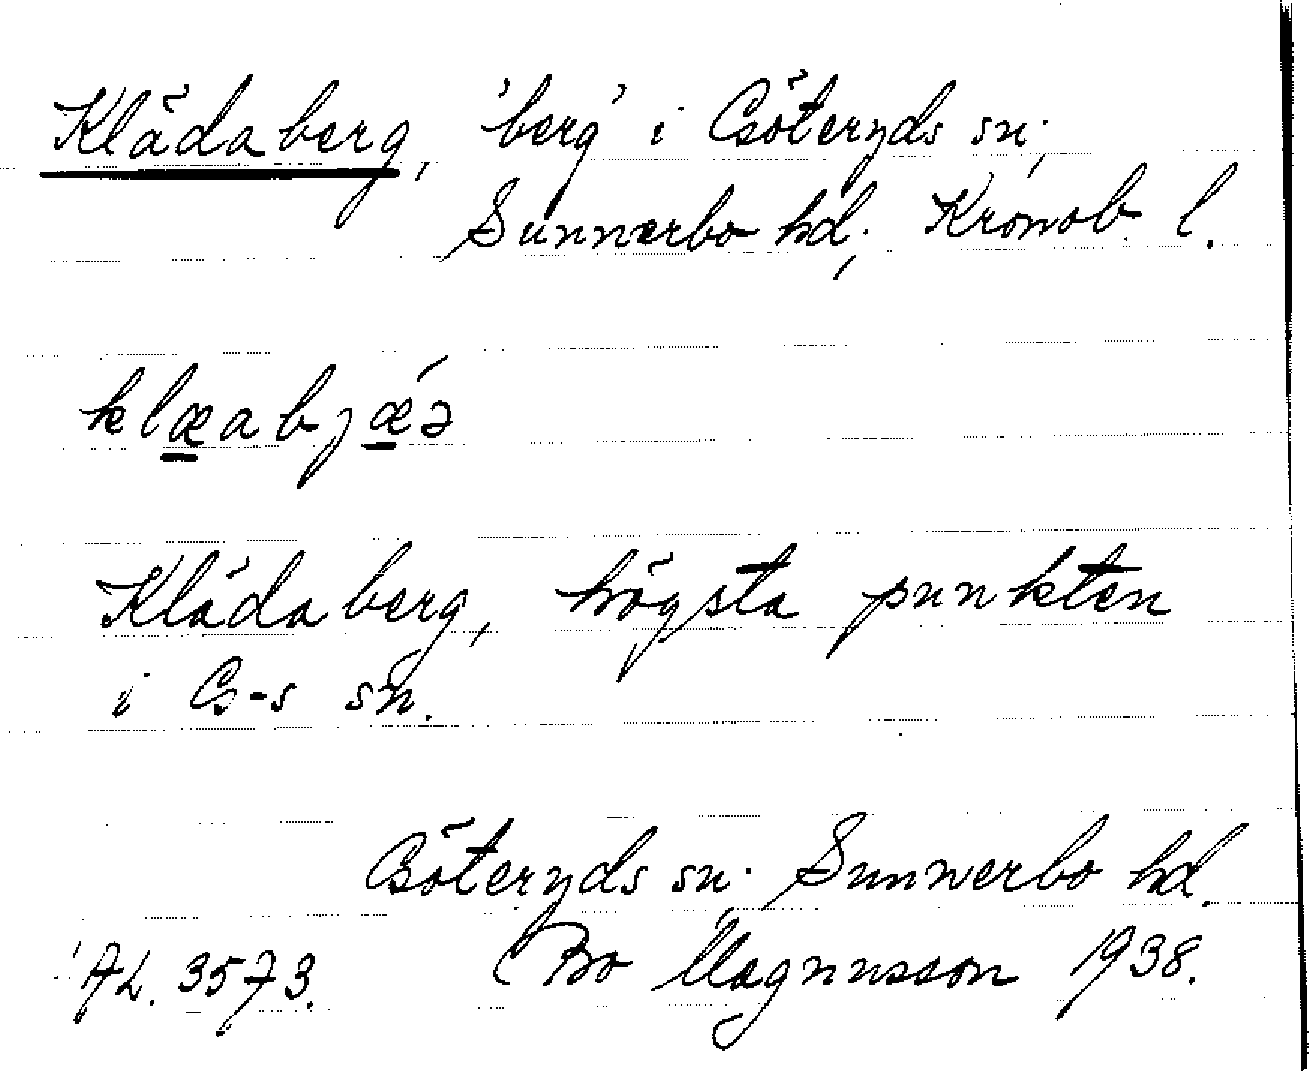 Klädaberg, 'berg' i Göteryds sn.,
Sunnerbo hd., Kronob. l.
klæabjǽə
Klädaberg, högsta punkten
i G-s sn.
Göteryds sn., Sunnerbo hd.
AL. 3573. Bo Magnusson 1938.